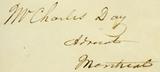 Mr Charles Day
Advocate
Montreal